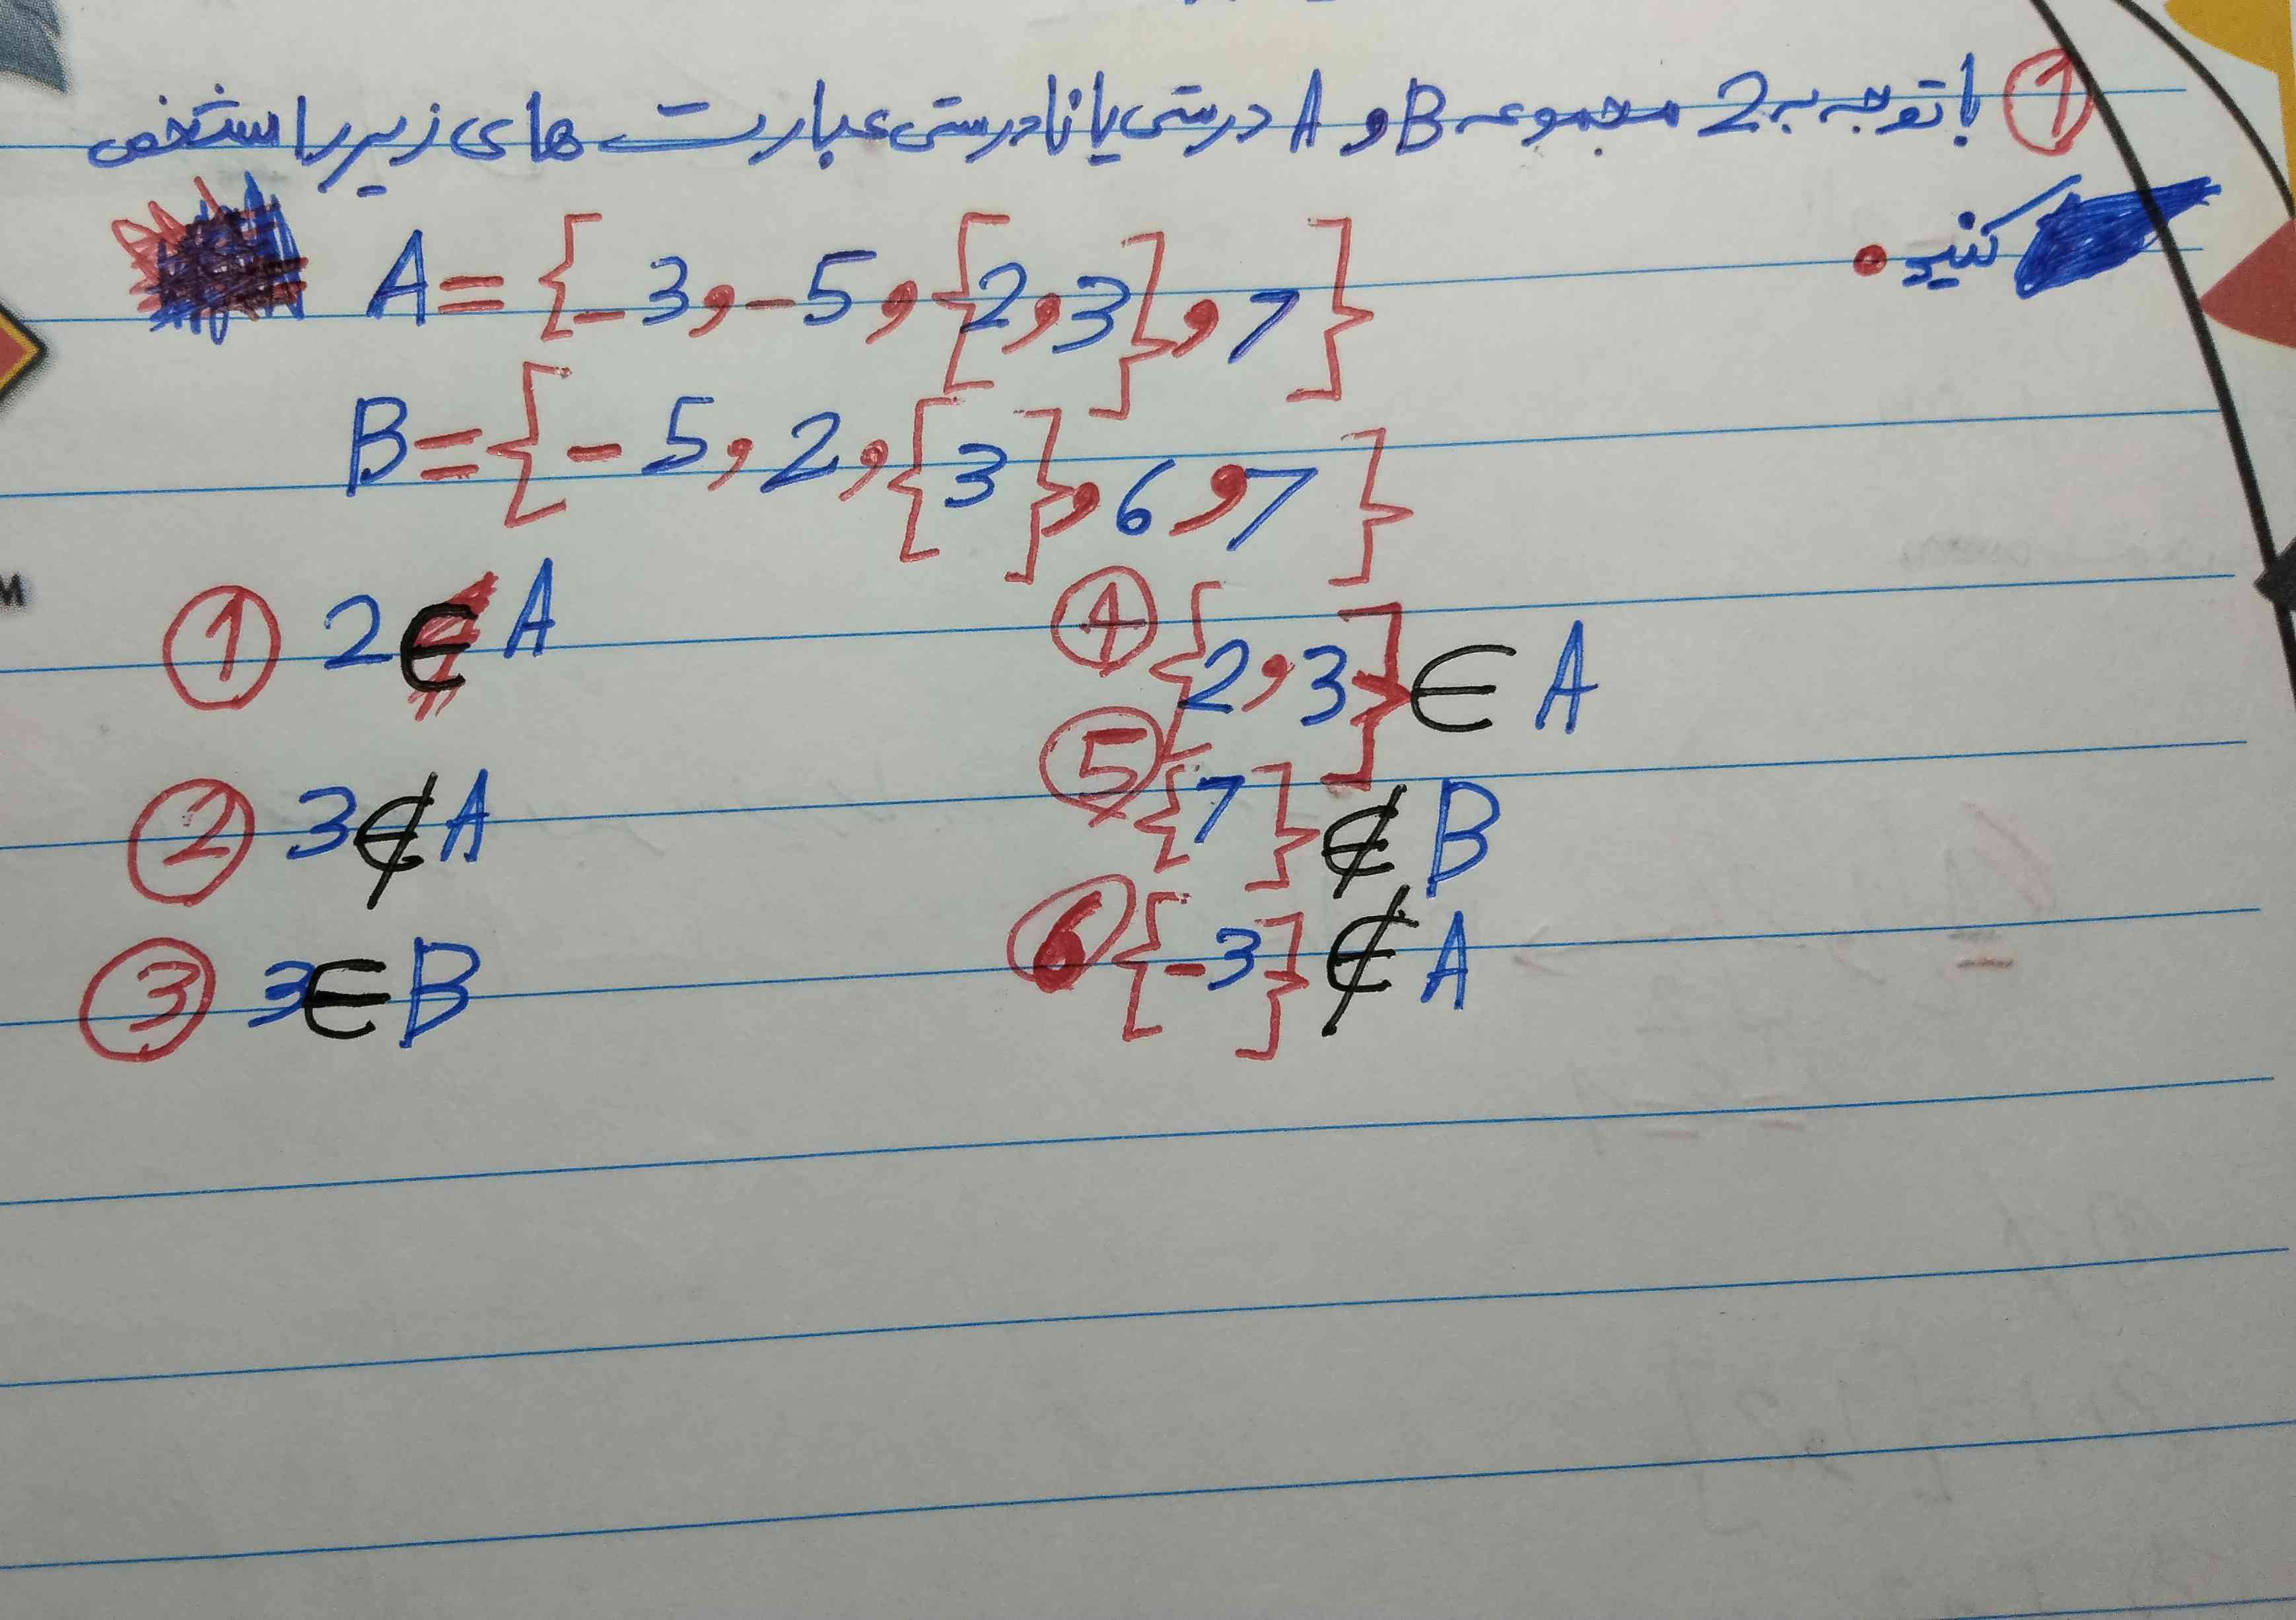 ① با توجه به 2 مجموعه B و A درستی یا نادرستی عبارت های زیر را مشخص
کنید.
A={-3,-5,{2,3},7}
B={-5,2,{3},6,7}
① 2∈A
② 3∉A
③ 3∈B
④ {2,3}∈A
⑤ {7}∉B
⑥ {-3}∉A
M